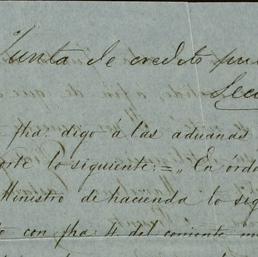 Junta de credito pu
Secc
fha: digo á las aduanas
orte lo siguiente: = „En órde
Ministro de hacienda lo sig
to con fha 4 del corriente m